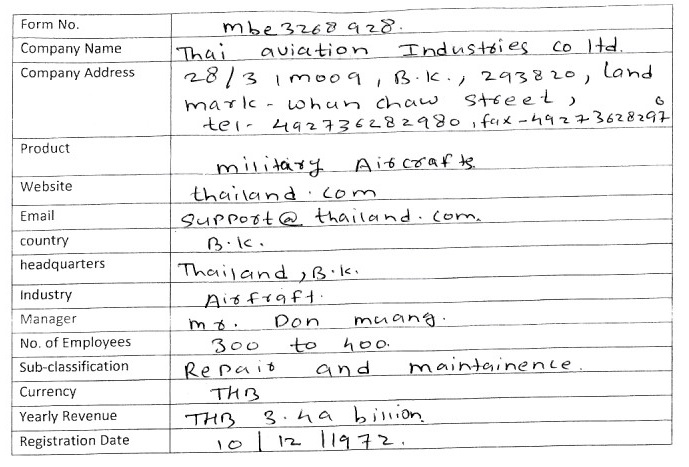 Form No. mbe3268928.
Company Name Thai aviation Industries co ltd.
Company Address 28/3, moo9, B.K., 293820, Land
mark - whun chaw street,
tel- 492736282980, fax-492736282970
Product military Aircrafts
Website thailand.com
Email support@thailand.com.
country B.K.
headquarters Thailand, B.K.
Industry Airfraft.
Manager mr. Don muang.
No. of Employees 300 to 400.
Sub-classification Repair and maintainence.
Currency THB
Yearly Revenue THB 3.49 billion
Registration Date 10/12/1972.